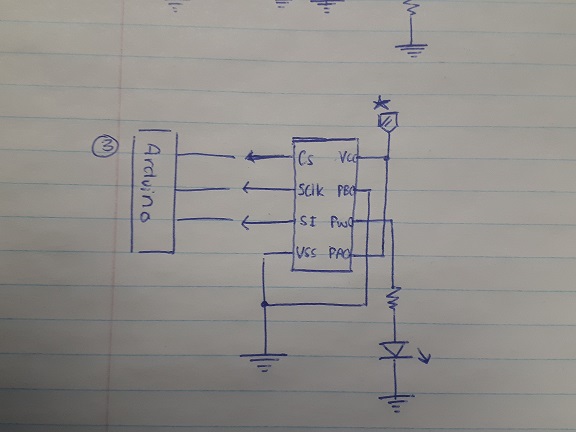 ★
③
Arduino
CS VCC
SClk PB0
SI PW0
VSS PA0